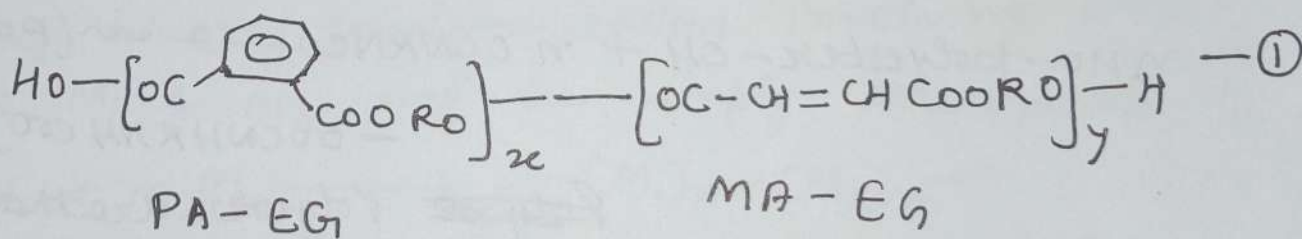 HO-[OC COORO]x--[OC-CH=CHCOORO]y-H -①
PA-EG MA-EG